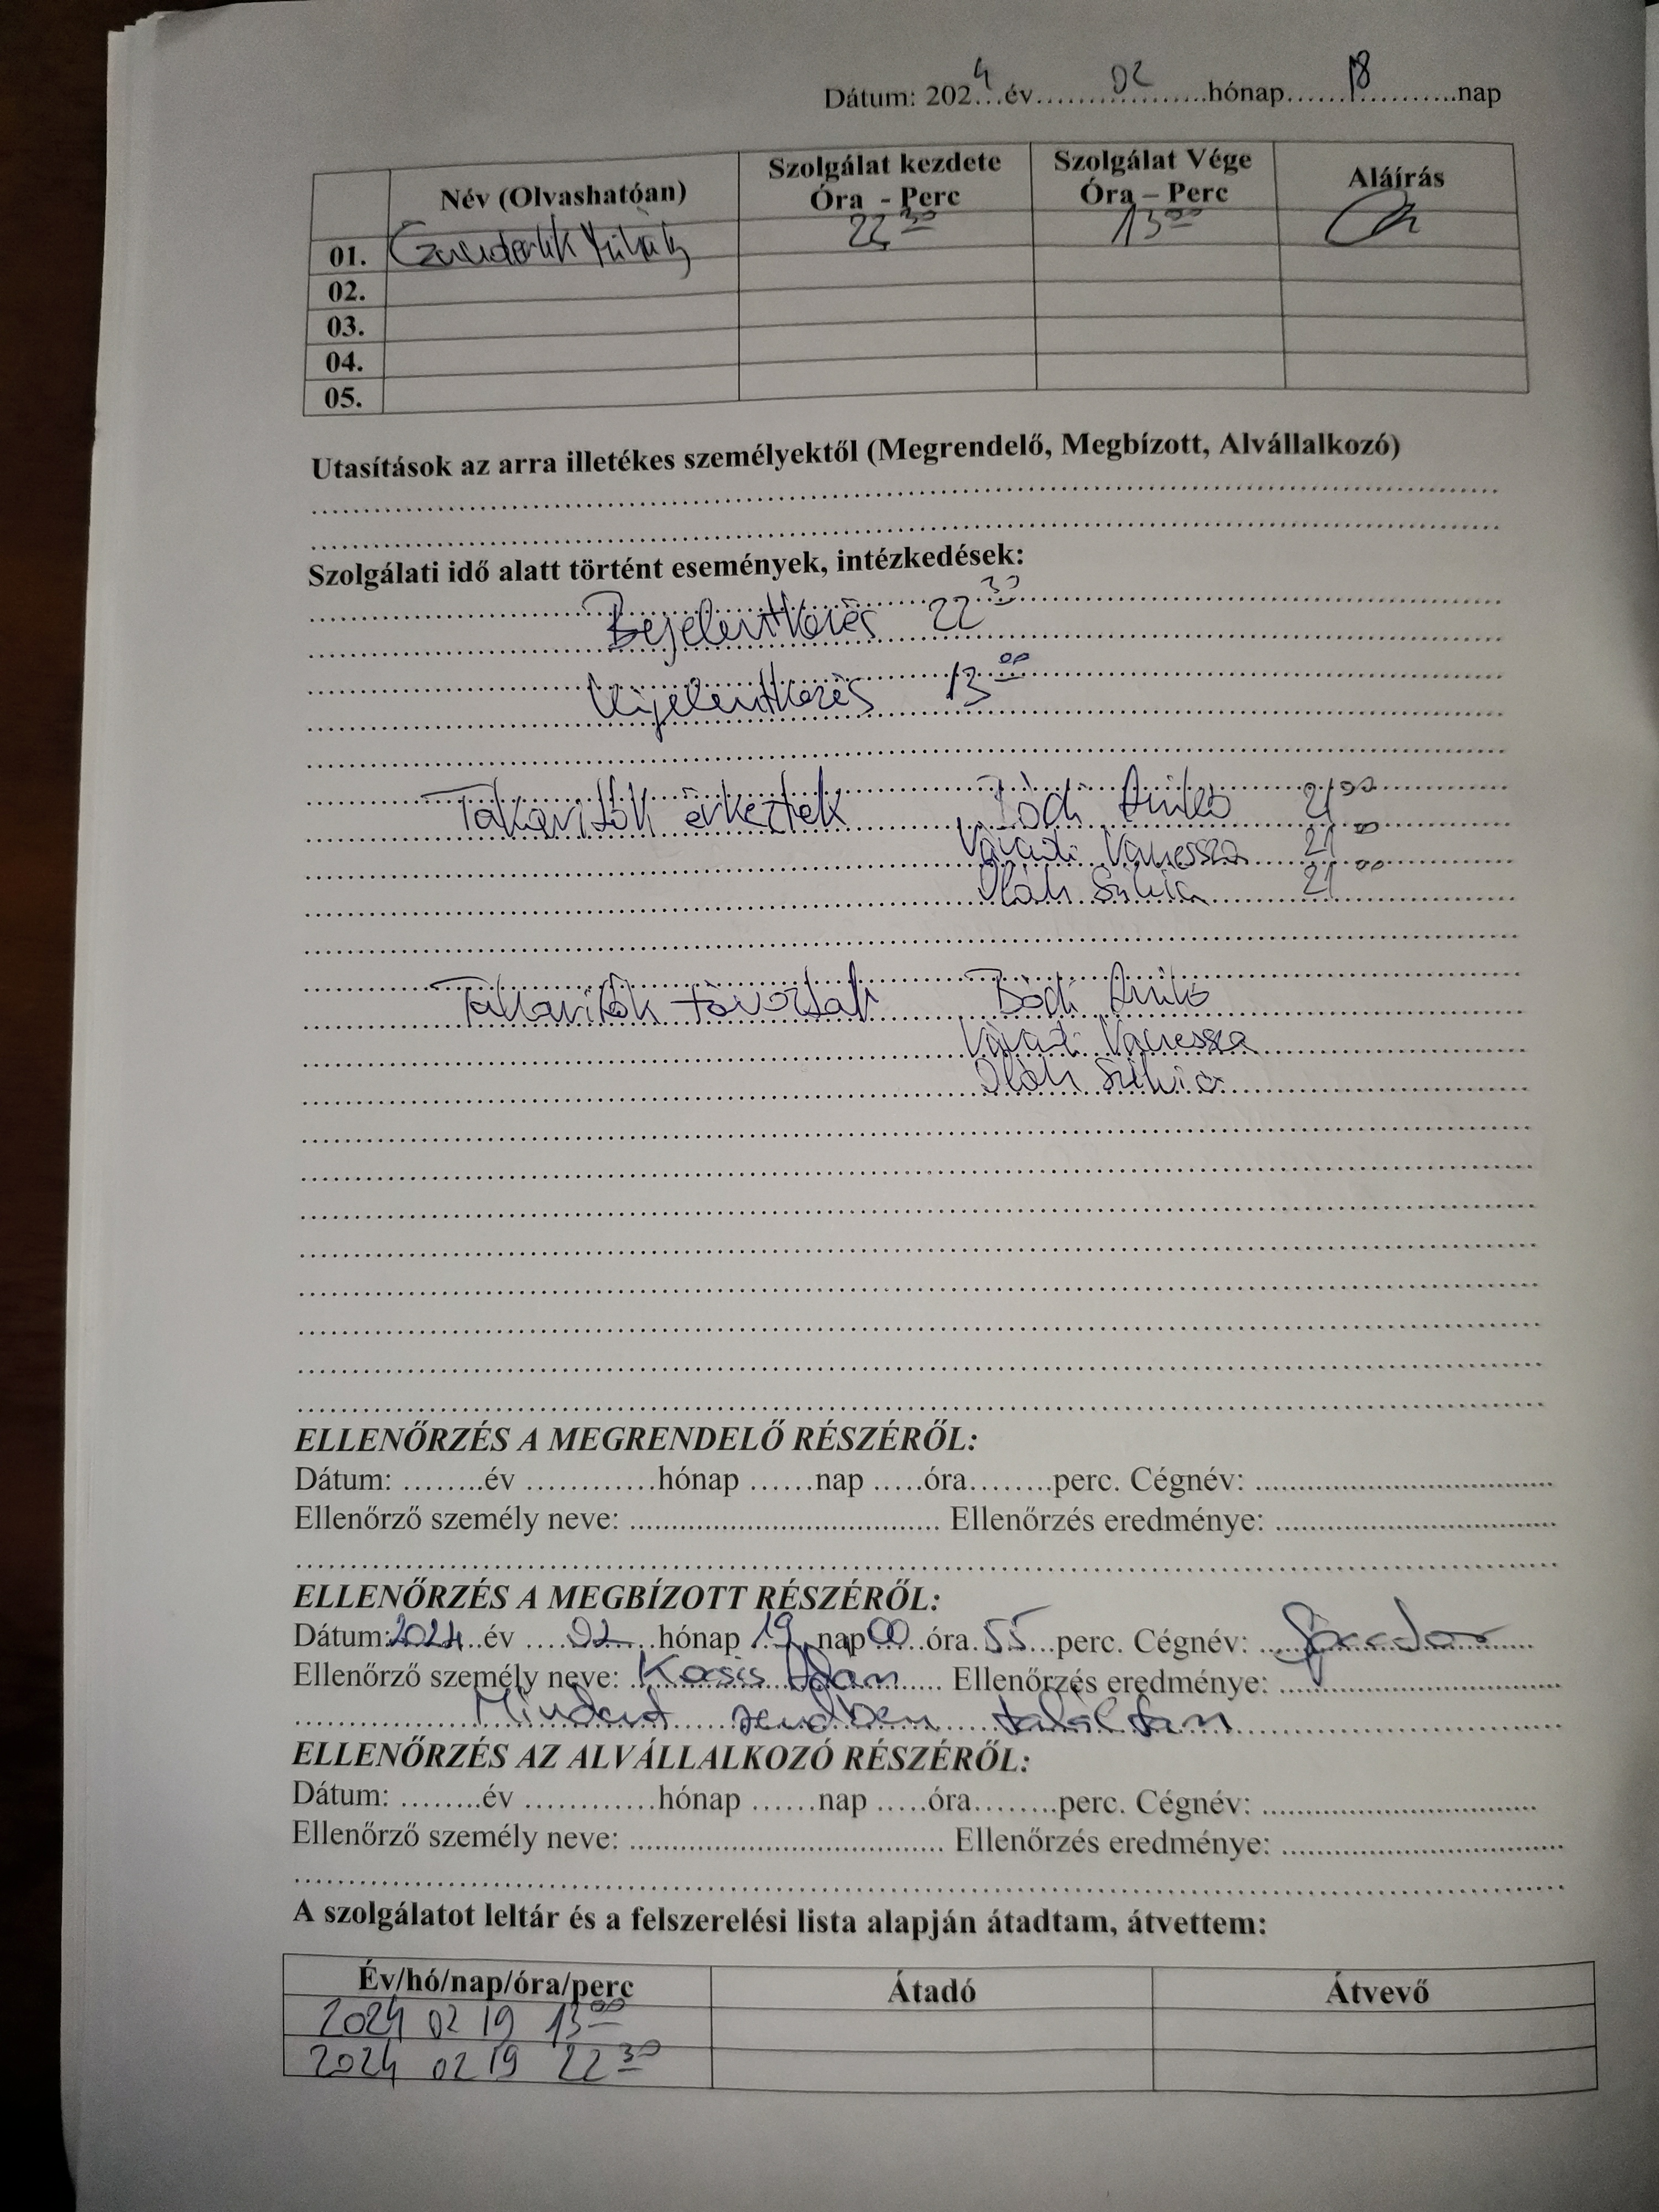 Dátum: 2024 év 02 hónap 18 nap
Név (Olvashatóan) Szolgálat kezdete Óra - Perc Szolgálat Vége Óra – Perc Aláírás
01. Mihály 22 30 13 00
02.
03.
04.
05.
Utasítások az arra illetékes személyektől (Megrendelő, Megbízott, Alvállalkozó)
Szolgálati idő alatt történt események, intézkedések:
Bejelentkezés 22 30
Kijelentkezés 13 00
Takarítók érkeztek Bódi Anikó 21 00
Váradi Vanessza 21 00
Oláh Szilvia 21 00
Takarítók távoztak Bódi Anikó
Váradi Vanessza
Oláh Szilvia
ELLENŐRZÉS A MEGRENDELŐ RÉSZÉRŐL:
Dátum: ........év ............hónap ......nap .....óra........perc. Cégnév: ...................................
Ellenőrző személy neve: ..................................... Ellenőrzés eredménye: .................................
ELLENŐRZÉS A MEGBÍZOTT RÉSZÉRŐL:
Dátum: 2024 év 02 hónap 19 nap 00 óra 55 perc. Cégnév:
Ellenőrző személy neve: Kocsis Ádám Ellenőrzés eredménye:
Mindent rendben találtam
ELLENŐRZÉS AZ ALVÁLLALKOZÓ RÉSZÉRŐL:
Dátum: ........év ............hónap ......nap .....óra........perc. Cégnév: .................................
Ellenőrző személy neve: ..................................... Ellenőrzés eredménye: .................................
A szolgálatot leltár és a felszerelési lista alapján átadtam, átvettem:
Év/hó/nap/óra/perc Átadó Átvevő
2024 02 19 13 00
2024 02 19 22 30